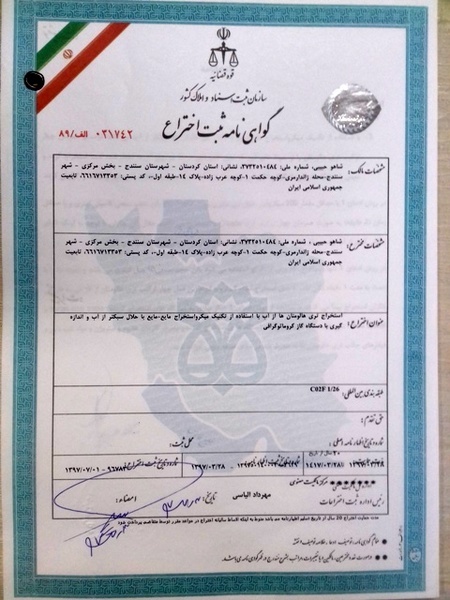 قوه قضائیه
سازمان ثبت اسناد و املاک کشور
گواهی نامه ثبت اختراع
۰۳۱۷۴۲ الف/۸۹
مشخصات مالک:
شاهو حبیبی، شماره ملی: ۳۷۳۲۵۱۰۴۸۴، نشانی: استان کردستان - شهرستان سنندج - بخش مرکزی - شهر
سنندج-محله ژاندارمری-کوچه حکمت ۱-کوچه عرب زاده-پلاک ۱۴-طبقه اول-، کد پستی: ۶۶۱۶۷۱۳۳۵۳، تابعیت
جمهوری اسلامی ایران
مشخصات مخترع:
شاهو حبیبی، شماره ملی: ۳۷۳۲۵۱۰۴۸۴، نشانی: استان کردستان - شهرستان سنندج - بخش مرکزی - شهر
سنندج-محله ژاندارمری-کوچه حکمت ۱-کوچه عرب زاده-پلاک ۱۴-طبقه اول-، کد پستی: ۶۶۱۶۷۱۳۳۵۳، تابعیت
جمهوری اسلامی ایران
عنوان اختراع:
استخراج تری هالومتان ها از آب با استفاده از تکنیک میکرواستخراج مایع-مایع با حلال سبکتر از آب و اندازه
گیری با دستگاه گاز کروماتوگرافی
طبقه بندی بین المللی:
C02F 1/26
حق تقدم:
شماره و تاریخ اظهارنامه اصلی:
محل ثبت:
شماره و تاریخ ثبت اختراع:
۹۶۷۸۳ - ۱۳۹۷/۰۷/۰۱
۱۳۹۷/۰۳/۲۸
۱۴۱۷/۰۳/۲۸
۱۳۹۷/۰۳/۲۸
مرکز مالکیت معنوی
رئیس اداره ثبت اختراعات
مهرداد الیاسی
تاریخ:
امضاء:
مدت حمایت اختراع 20 سال از تاریخ تسلیم اظهارنامه می باشد منوط به اینکه اقساط سالیانه اختراع در مواعد مقرر توسط متقاضی پرداخت شود